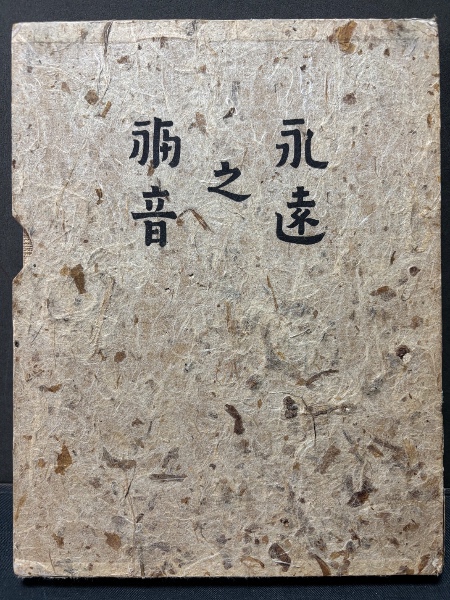 永遠
之
福音